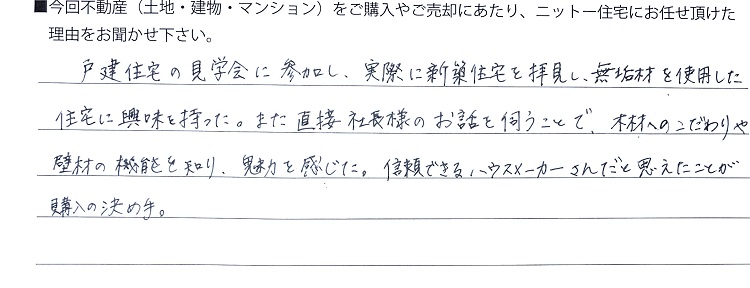 ■今回不動産（土地・建物・マンション）をご購入やご売却にあたり、ニットー住宅にお任せ頂けた
理由をお聞かせ下さい。
戸建住宅の見学会に参加し、実際に新築住宅を拝見し、無垢材を使用した
住宅に興味を持った。また直接社長様のお話を伺うことで、木材へのこだわりや
壁材の機能を知り、魅力を感じた。信頼できるハウスメーカーさんだと思えたことが
購入の決め手。